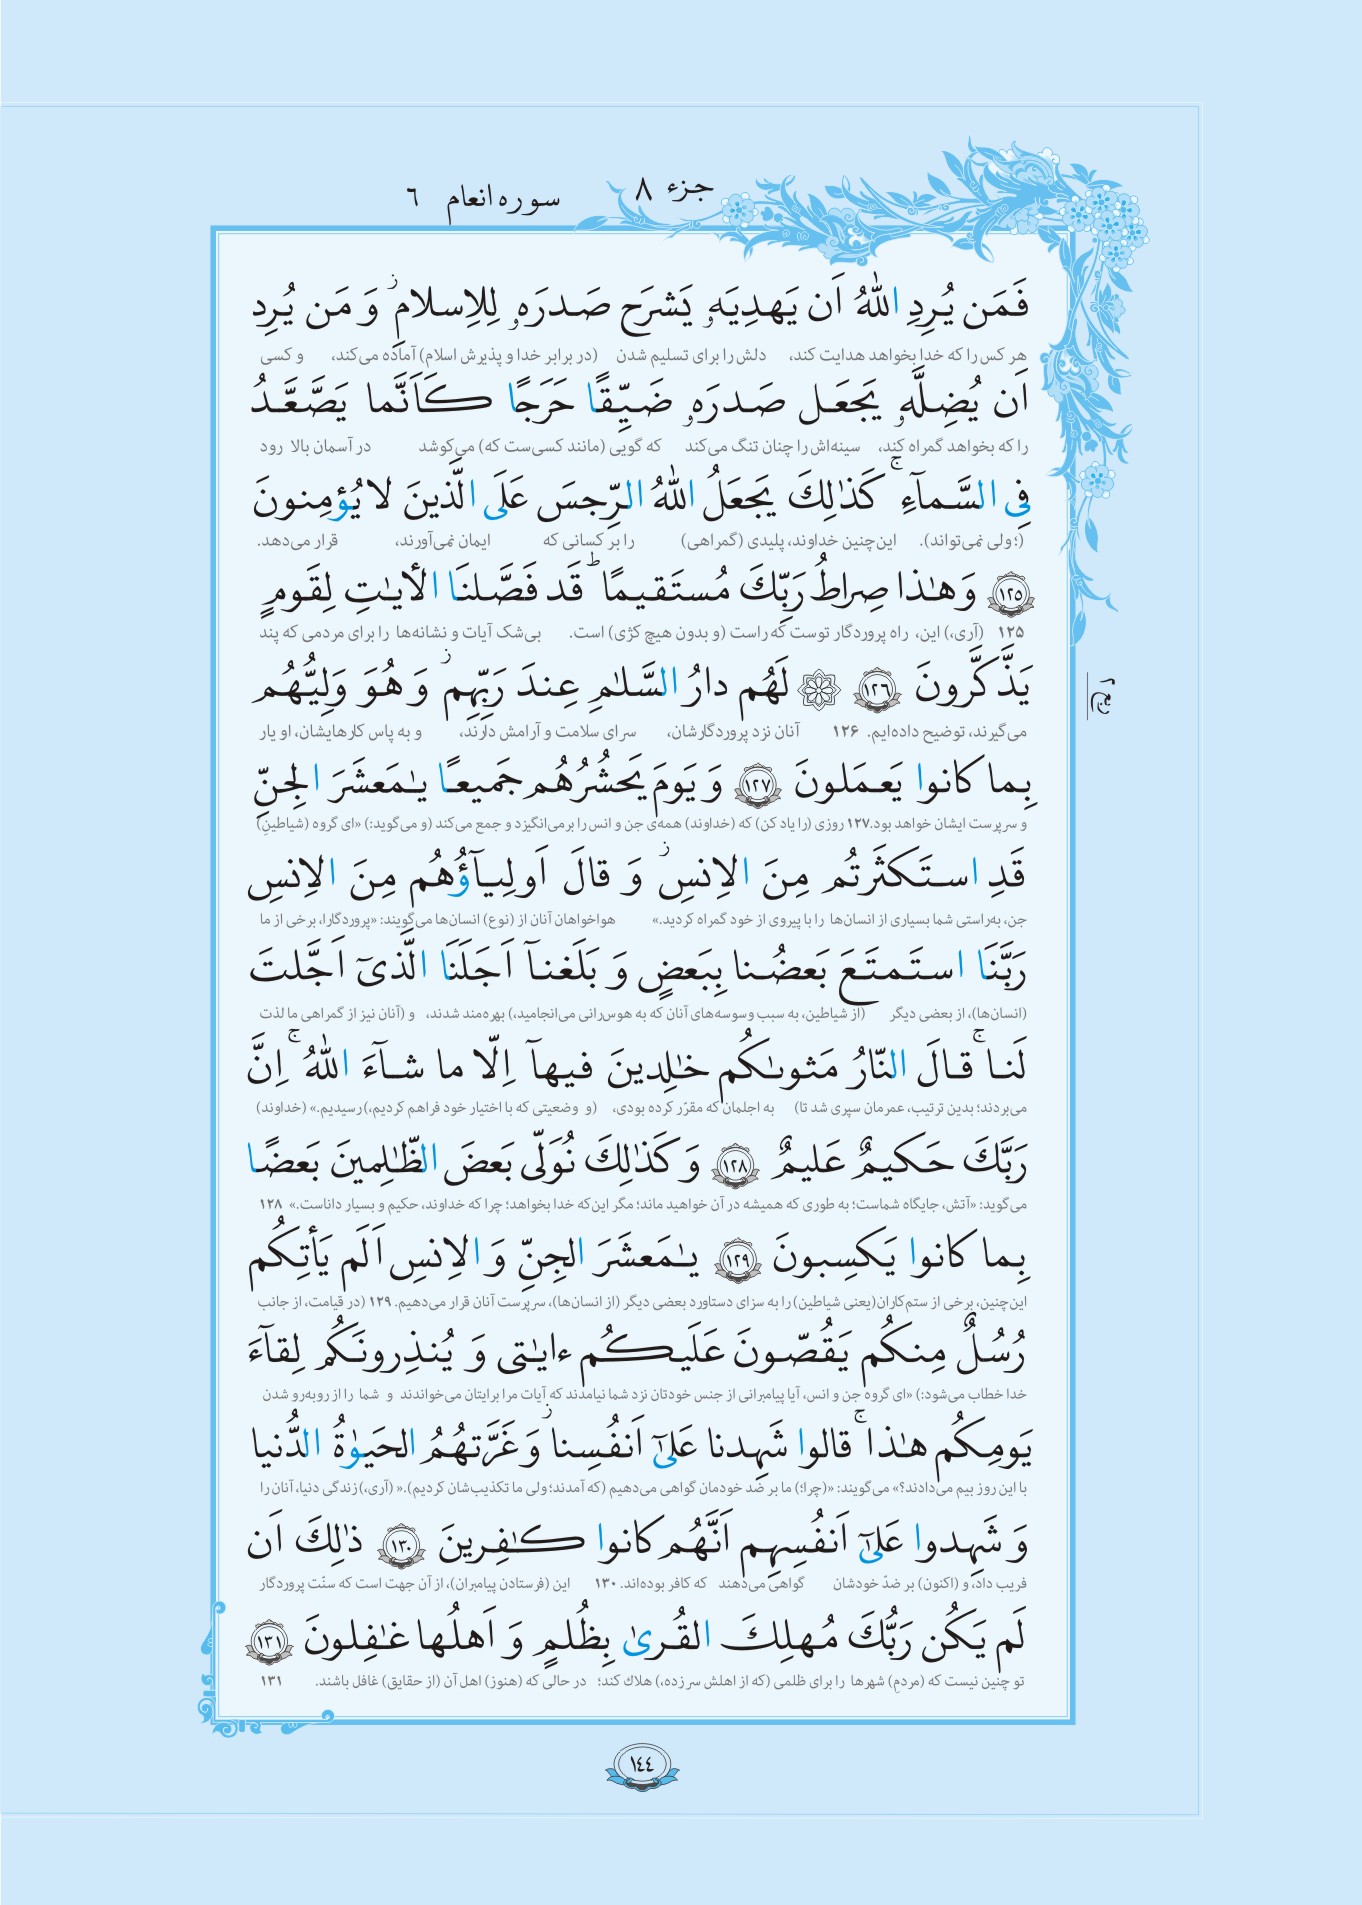 جزء ٨
سوره انعام ٦
فَمَن يُرِدِ اللّٰهُ اَن يَهدِيَهۥ يَشرَح صَدرَهۥ لِلاِسلامِ ۖ وَ مَن يُرِد
هر کس را که خدا بخواهد هدایت کند، دلش را برای تسلیم شدن (در برابر خدا و پذیرش اسلام) آماده می‌کند، و کسی
اَن يُضِلَّهۥ يَجعَل صَدرَهۥ ضَيِّقًا حَرَجًا كَاَنَّما يَصَّعَّدُ
را که بخواهد گمراه کند، سینه‌اش را چنان تنگ می‌کند که گویی (مانند کسی‌ست که) می‌کوشد در آسمان بالا رود
فِى السَّمآءِ ۚ كَذٰلِكَ يَجعَلُ اللّٰهُ الرِّجسَ عَلَى الَّذينَ لا يُؤمِنونَ
(؛ ولی نمی‌تواند). این‌چنین خداوند، پلیدی (گمراهی) را بر کسانی که ایمان نمی‌آورند، قرار می‌دهد.
﴿١٢٥﴾ وَ هٰذا صِراطُ رَبِّكَ مُستَقيمًا ۗ قَد فَصَّلنَا الأيٰتِ لِقَومٍ
۱۲۵ (آری،) این، راه پروردگار توست که راست (و بدون هیچ کژی) است. بی‌شک آیات و نشانه‌ها را برای مردمی که پند
يَذَّكَّرونَ ﴿١٢٦﴾ ۞ لَهُم دارُ السَّلٰمِ عِندَ رَبِّهِم ۖ وَ هُوَ وَلِيُّهُم
می‌گیرند، توضیح داده‌ایم. ۱۲۶ آنان نزد پروردگارشان، سرای سلامت و آرامش دارند، و به پاس کارهایشان، او یار
ربع ٢
بِما كانوا يَعمَلونَ ﴿١٢٧﴾ وَ يَومَ يَحشُرُهُم جَميعًا يٰمَعشَرَ الجِنِّ
و سرپرست ایشان خواهد بود. ۱۲۷ روزی (را یاد کن) که (خداوند) همه‌ی جن و انس را برمی‌انگیزد و جمع می‌کند (و می‌گوید:) «ای گروه (شیاطینِ)
قَدِ استَكثَرتُم مِنَ الاِنسِ ۖ وَ قالَ اَولِيآؤُهُم مِنَ الاِنسِ
جن، به‌راستی شما بسیاری از انسان‌ها را با پیروی از خود گمراه کردید.» هواخواهان آنان از (نوع) انسان‌ها می‌گویند: «پروردگارا، برخی از ما
رَبَّنَا استَمتَعَ بَعضُنا بِبَعضٍ وَ بَلَغنآ اَجَلَنَا الَّذىٓ اَجَّلتَ
(انسان‌ها)، از بعضی دیگر (از شیاطین، به سبب وسوسه‌های آنان که به هوس‌رانی می‌انجامید،) بهره‌مند شدند، و (آنان نیز از گمراهی ما لذت
لَنا ۚ قالَ النّارُ مَثوىٰكُم خٰلِدينَ فيهآ اِلّا ما شآءَ اللّٰهُ ۚ اِنَّ
می‌بردند؛ بدین ترتیب، عمرمان سپری شد تا) به اجلمان که مقرّر کرده بودی، (و وضعیتی که با اختیار خود فراهم کردیم،) رسیدیم.» (خداوند)
رَبَّكَ حَكيمٌ عَليمٌ ﴿١٢٨﴾ وَ كَذٰلِكَ نُوَلّى بَعضَ الظّٰلِمينَ بَعضًا
می‌گوید: «آتش، جایگاه شماست؛ به طوری که همیشه در آن خواهید ماند؛ مگر این‌که خدا بخواهد؛ چرا که خداوند، حکیم و بسیار داناست.» ۱۲۸
بِما كانوا يَكسِبونَ ﴿١٢٩﴾ يٰمَعشَرَ الجِنِّ وَ الاِنسِ اَلَم يَأتِكُم
این‌چنین، برخی از ستم‌کاران(یعنی شیاطین) را به سزای دستاورد بعضی دیگر (از انسان‌ها)، سرپرست آنان قرار می‌دهیم. ۱۲۹ (در قیامت، از جانب
رُسُلٌ مِنكُم يَقُصّونَ عَلَيكُم ءايٰتى وَ يُنذِرونَكُم لِقآءَ
خدا خطاب می‌شود:) «ای گروه جن و انس، آیا پیامبرانی از جنس خودتان نزد شما نیامدند که آیات مرا برایتان می‌خواندند و شما را از روبه‌رو شدن
يَومِكُم هٰذا ۚ قالوا شَهِدنا عَلىٰٓ اَنفُسِنا ۖ وَ غَرَّتهُمُ الحَيَوٰةُ الدُّنيا
با این روز بیم می‌دادند؟» می‌گویند: «(چرا؛) ما بر ضد خودمان گواهی می‌دهیم (که آمدند؛ ولی ما تکذیب‌شان کردیم).» (آری،) زندگی دنیا، آنان را
وَ شَهِدوا عَلىٰٓ اَنفُسِهِم اَنَّهُم كانوا كٰفِرينَ ﴿١٣٠﴾ ذٰلِكَ اَن
فریب داد، و (اکنون) بر ضدّ خودشان گواهی می‌دهند که کافر بوده‌اند. ۱۳۰ این (فرستادن پیامبران)، از آن جهت است که سنّت پروردگار
لَم يَكُن رَبُّكَ مُهلِكَ القُرىٰ بِظُلمٍ وَ اَهلُها غٰفِلونَ ﴿١٣١﴾
تو چنین نیست که (مردمِ) شهرها را برای ظلمی (که از اهلش سر زده،) هلاک کند؛ در حالی که (هنوز) اهل آن (از حقایق) غافل باشند. ۱۳۱
١٤٤